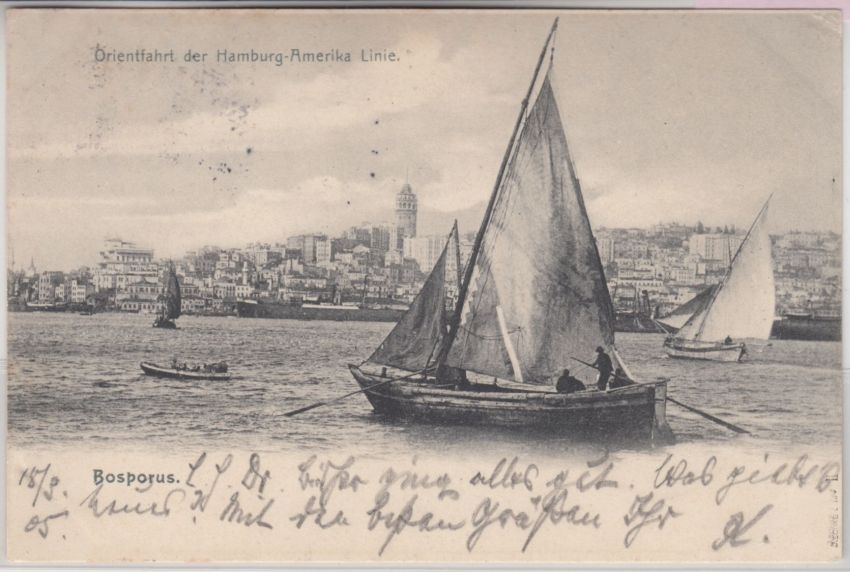 Orientfahrt der Hamburg-Amerika Linie.
Bosporus. L. Dr. bisher ging alles gut. Was giebts
18/3. neues? Mit den besten Grüßen Ihr
05.